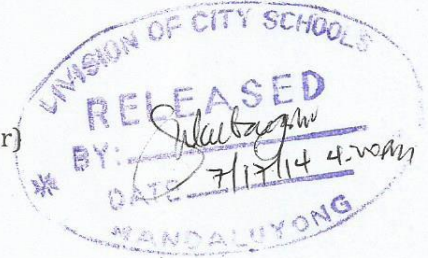 DIVISION OF CITY SCHOOLS
r)
RELEASED
BY:
DATE 7/17/14
MANDALUYONG